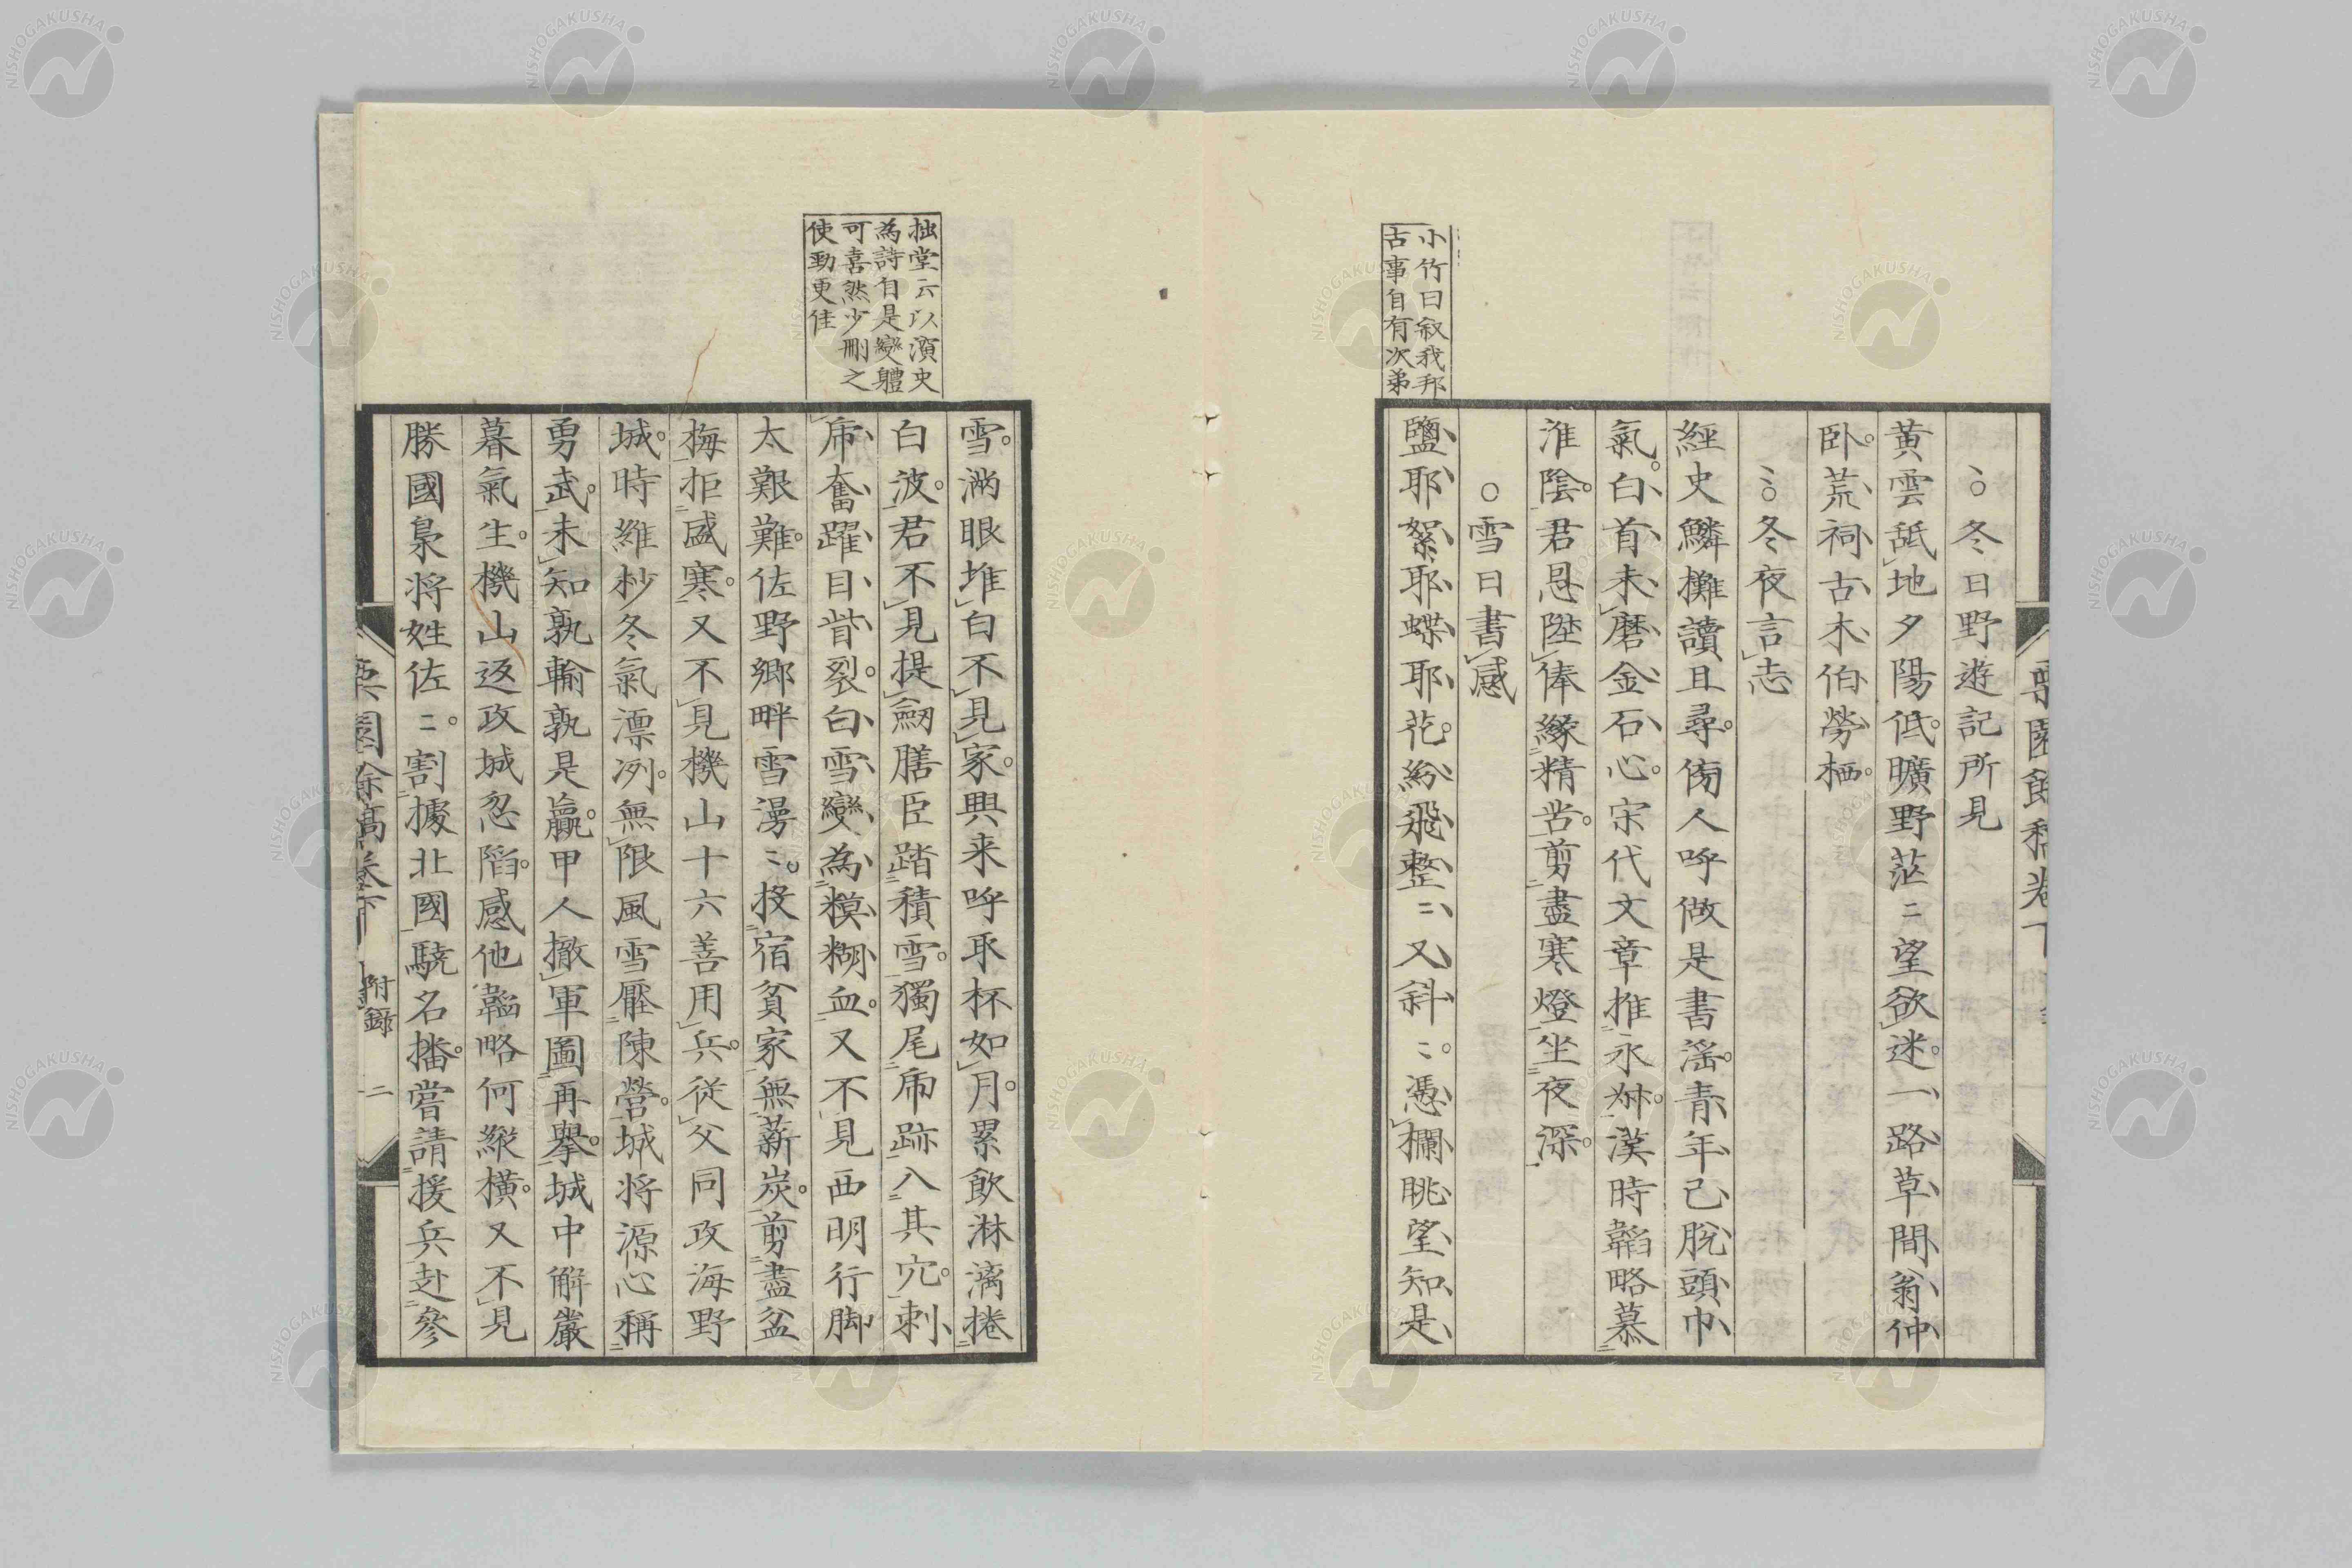 冬日野遊記所見
黃雲舐地夕陽低曠野茫〻望欲迷一路草間翁仲
卧荒祠古木伯勞栖
冬夜言志
經史鱗攤讀且尋傍人呼做是書滛青年已脫頭巾
氣白首未磨金石心宋代文章推永叔漢時韜略慕
淮陰君恩陞俸緣精苦剪盡寒燈坐夜深
○雪日書感
小竹曰叙我邦
古事自有次第
鹽耶絮耶蝶耶花紛飛整〻又斜〻憑欄眺望知是
雪滿眼堆白不見家興来呼取杯如月累飲淋漓捲
白波君不見提劒膳臣踏積雪獨尾乕跡入其穴刺
拙堂云以演史
為詩自是變體
可喜然少刪之
使勁更佳
乕奮躍目眥裂白雪變為糢糊血又不見西明行脚
太艱難佐野鄉畔雪漫〻投宿貧家無薪炭剪盡盆
梅拒盛寒又不見機山十六善用兵従父同攻海野
城時維杪冬氣凛冽無限風雪壓陳營城将源心稱
勇武未知孰輸孰是贏甲人撤軍圖再擧城中解嚴
暮氣生機山返攻城忽陷感他韜略何縱橫又不見
勝國梟将姓佐〻割據北國驍名播嘗請援兵赴參
附錄
二
NISHOGAKUSHA